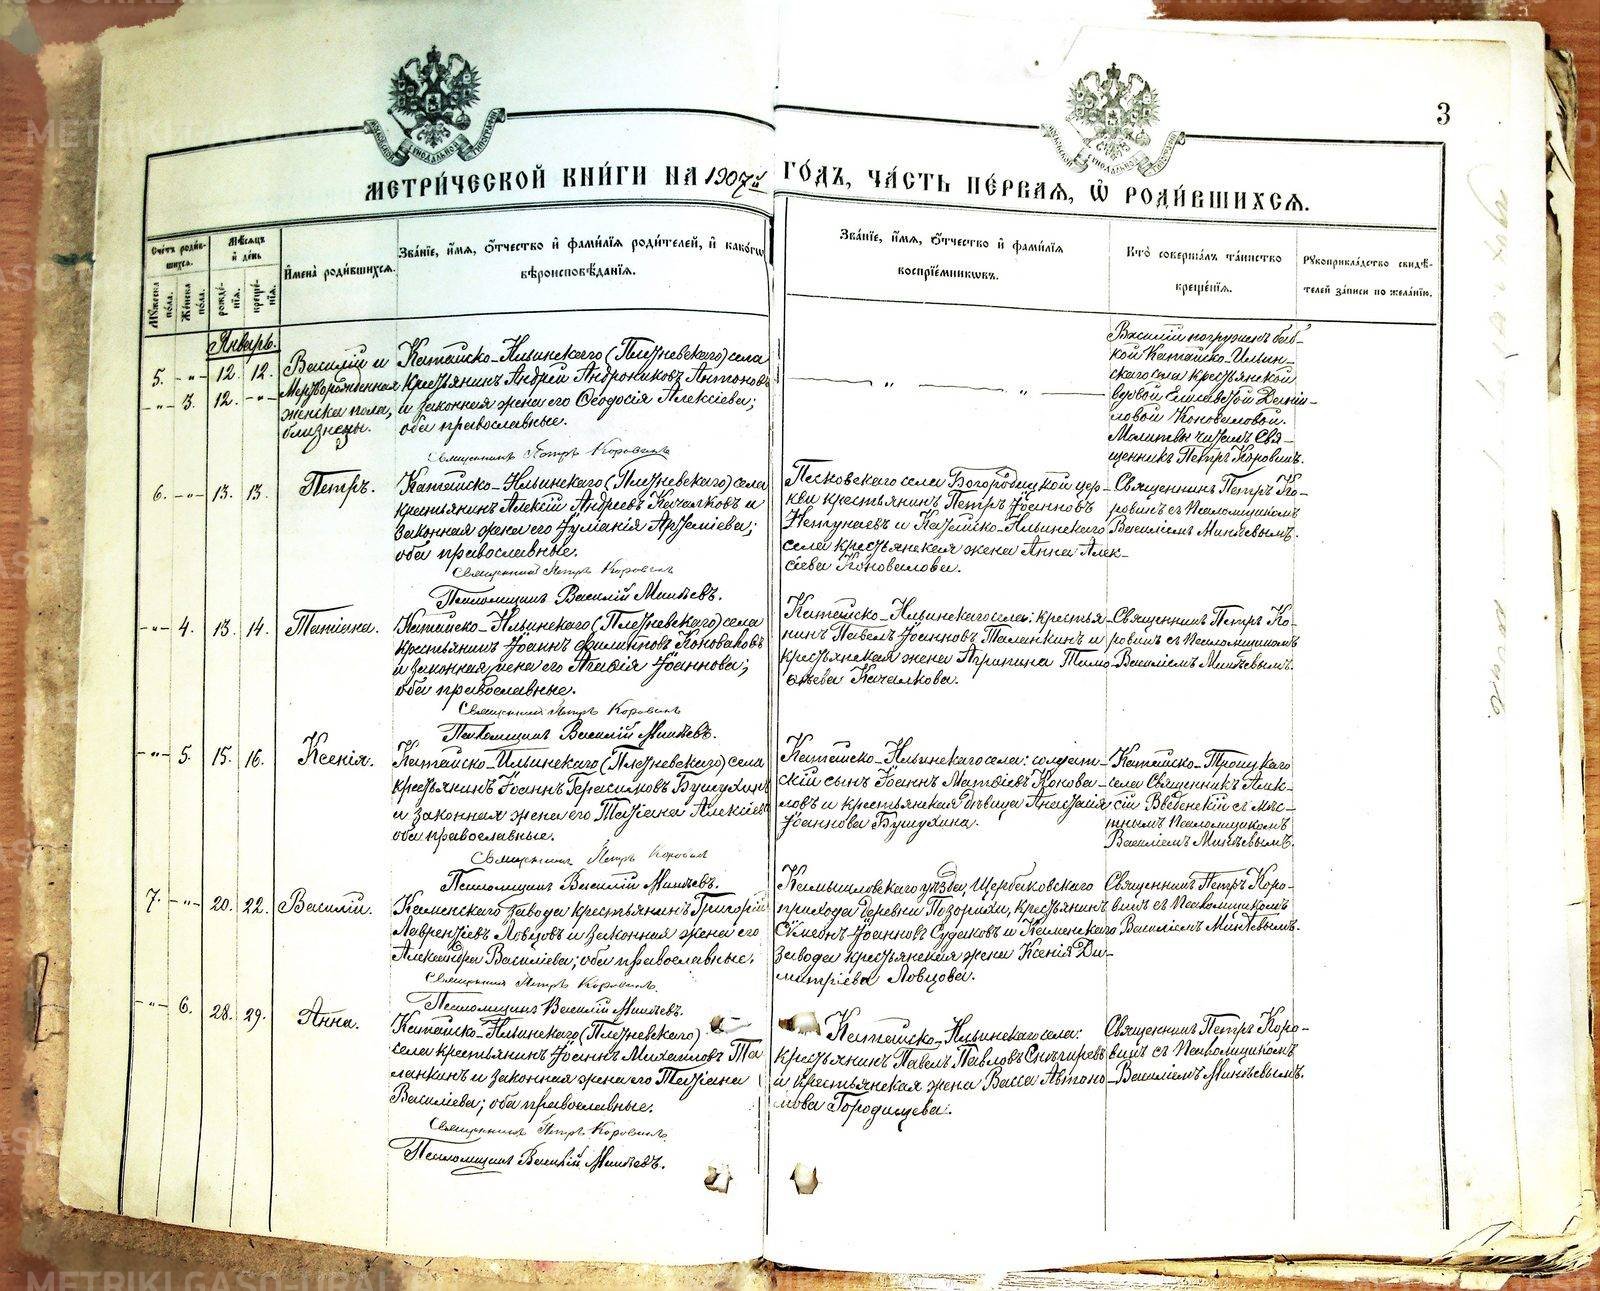 3
МЕТРИ́ЧЕСКОЙ КНИ́ГИ НА 1907й ГО́ДЪ, ЧА́СТЬ ПЕ́РВАЯ, Ѿ РОДИ́ВШИХСЯ.
Сче́тъ роди́вшихся.
Му́жеска по́ла.
Же́нска по́ла.
Мѣ́сяцъ и҆ де́нь
рожде́нїя.
креще́нїя.
И҆мена̀ роди́вшихся.
Зва́нїе, и҆́мя, ѻ҆́тчество и҆ фами́лїя роди́телей, и҆ како́гѡ
вѣроисповѣ́данїя.
Зва́нїе, и҆́мя, ѻ҆́тчество и҆ фами́лїя
воспрїе́мникѡвъ.
Кто̀ соверша́лъ та́инство
креще́нїя.
Рꙋкоприкла́дство свидѣ́-
телей за́писи по жела́нїю.
Январь.
5. -"- 12. 12.
-"- 3. 12. -"-
Василій и
Мертворожденная
женска пола,
близнецы.
Катайско-Ильинскаго (Плетневскаго) села
крестьянинъ Андрей Андрониковъ Антоновъ
и законная жена его Ѳеодосія Алексіева;
оба православные.
Священникъ Петръ Коровинъ
" "
Василій погруженъ баб-
кой Катайско-Ильин-
скаго села крестьянской
вдовой Елисаветой Дании-
ловой Коноваловой.
Молитвы читалъ Свя-
щенникъ Петръ Коровинъ.
6. -"- 13. 13.
Петръ.
Катайско-Ильинскаго (Плетневскаго) села
крестьянинъ Алексій Андреевъ Качалковъ и
законная жена его Іуліанія Артеміева;
оба православные.
Священникъ Петръ Коровинъ
Псаломщикъ Василій Минѣевъ.
Песковскаго села Богородицкой цер-
кви крестьянинъ Петръ Іоанновъ
и Катайско-Ильинскаго
села крестьянская жена Анна Алек-
сіева Коновалова.
Священникъ Петръ Ко-
ровинъ съ Псаломщикомъ
Василіемъ Минѣевымъ.
-"- 4. 13. 14.
Татіана.
Катайско-Ильинскаго (Плетневскаго) села
крестьянинъ Іоаннъ Филипповъ Коноваловъ
и законная жена его Агаѳія Іоаннова;
оба православные.
Священникъ Петръ Коровинъ
Псаломщикъ Василій Минѣевъ.
Катайско-Ильинскаго села: крестья-
нинъ Павелъ Іоанновъ Таланкинъ и
крестьянская жена Агрипина Тимо-
ѳеева Качалкова.
Священникъ Петръ Ко-
ровинъ съ Псаломщикомъ
Василіемъ Минѣевымъ.
-"- 5. 15. 16.
Ксенія.
Катайско-Ильинскаго (Плетневскаго) села
крестьянинъ Іоаннъ Герасимовъ Бушухинъ
и законная жена его Татіана Алексіева
оба православные.
Священникъ Петръ Коровинъ
Псаломщикъ Василій Минѣевъ.
Катайско-Ильинскаго села: солдат-
скій сынъ Іоаннъ Матѳіевъ Конова-
ловъ и крестьянская дѣвица Анастасія
Іоаннова Бушухина.
Катайско-Троицкаго
села Священникъ Алек-
сій Введенскій съ мѣс-
тнымъ Псаломщикомъ
Василіемъ Минѣевымъ.
7. -"- 20. 22.
Василій.
Каменскаго завода крестьянинъ Григорій
Лаврентіевъ Ловцовъ и законная жена его
Александра Василіева; оба православные.
Священникъ Петръ Коровинъ.
Псаломщикъ Василій Минѣевъ.
Камышловскаго уѣзда, Щербаковскаго
прихода деревни Позорихи, крестьянинъ
Сѵмеонъ Іоанновъ Судаковъ и Каменскаго
завода крестьянская жена Ксенія Ди-
митріева Ловцова.
Священникъ Петръ Коро-
винъ съ Псаломщикомъ
Василіемъ Минѣевымъ.
-"- 6. 28. 29.
Анна.
Катайско-Ильинскаго (Плетневскаго)
села крестьянинъ Іоаннъ Михаиловъ Та-
ланкинъ и законная жена его Татіана
Василіева; оба православные.
Священникъ Петръ Коровинъ.
Псаломщикъ Василій Минѣевъ.
Катайско-Ильинскаго села:
крестьянинъ Павелъ Павловъ Снѣгиревъ
и крестьянская жена Васса Автоно-
мова Городищева.
Священникъ Петръ Коро-
винъ съ Псаломщикомъ
Василіемъ Минѣевымъ.